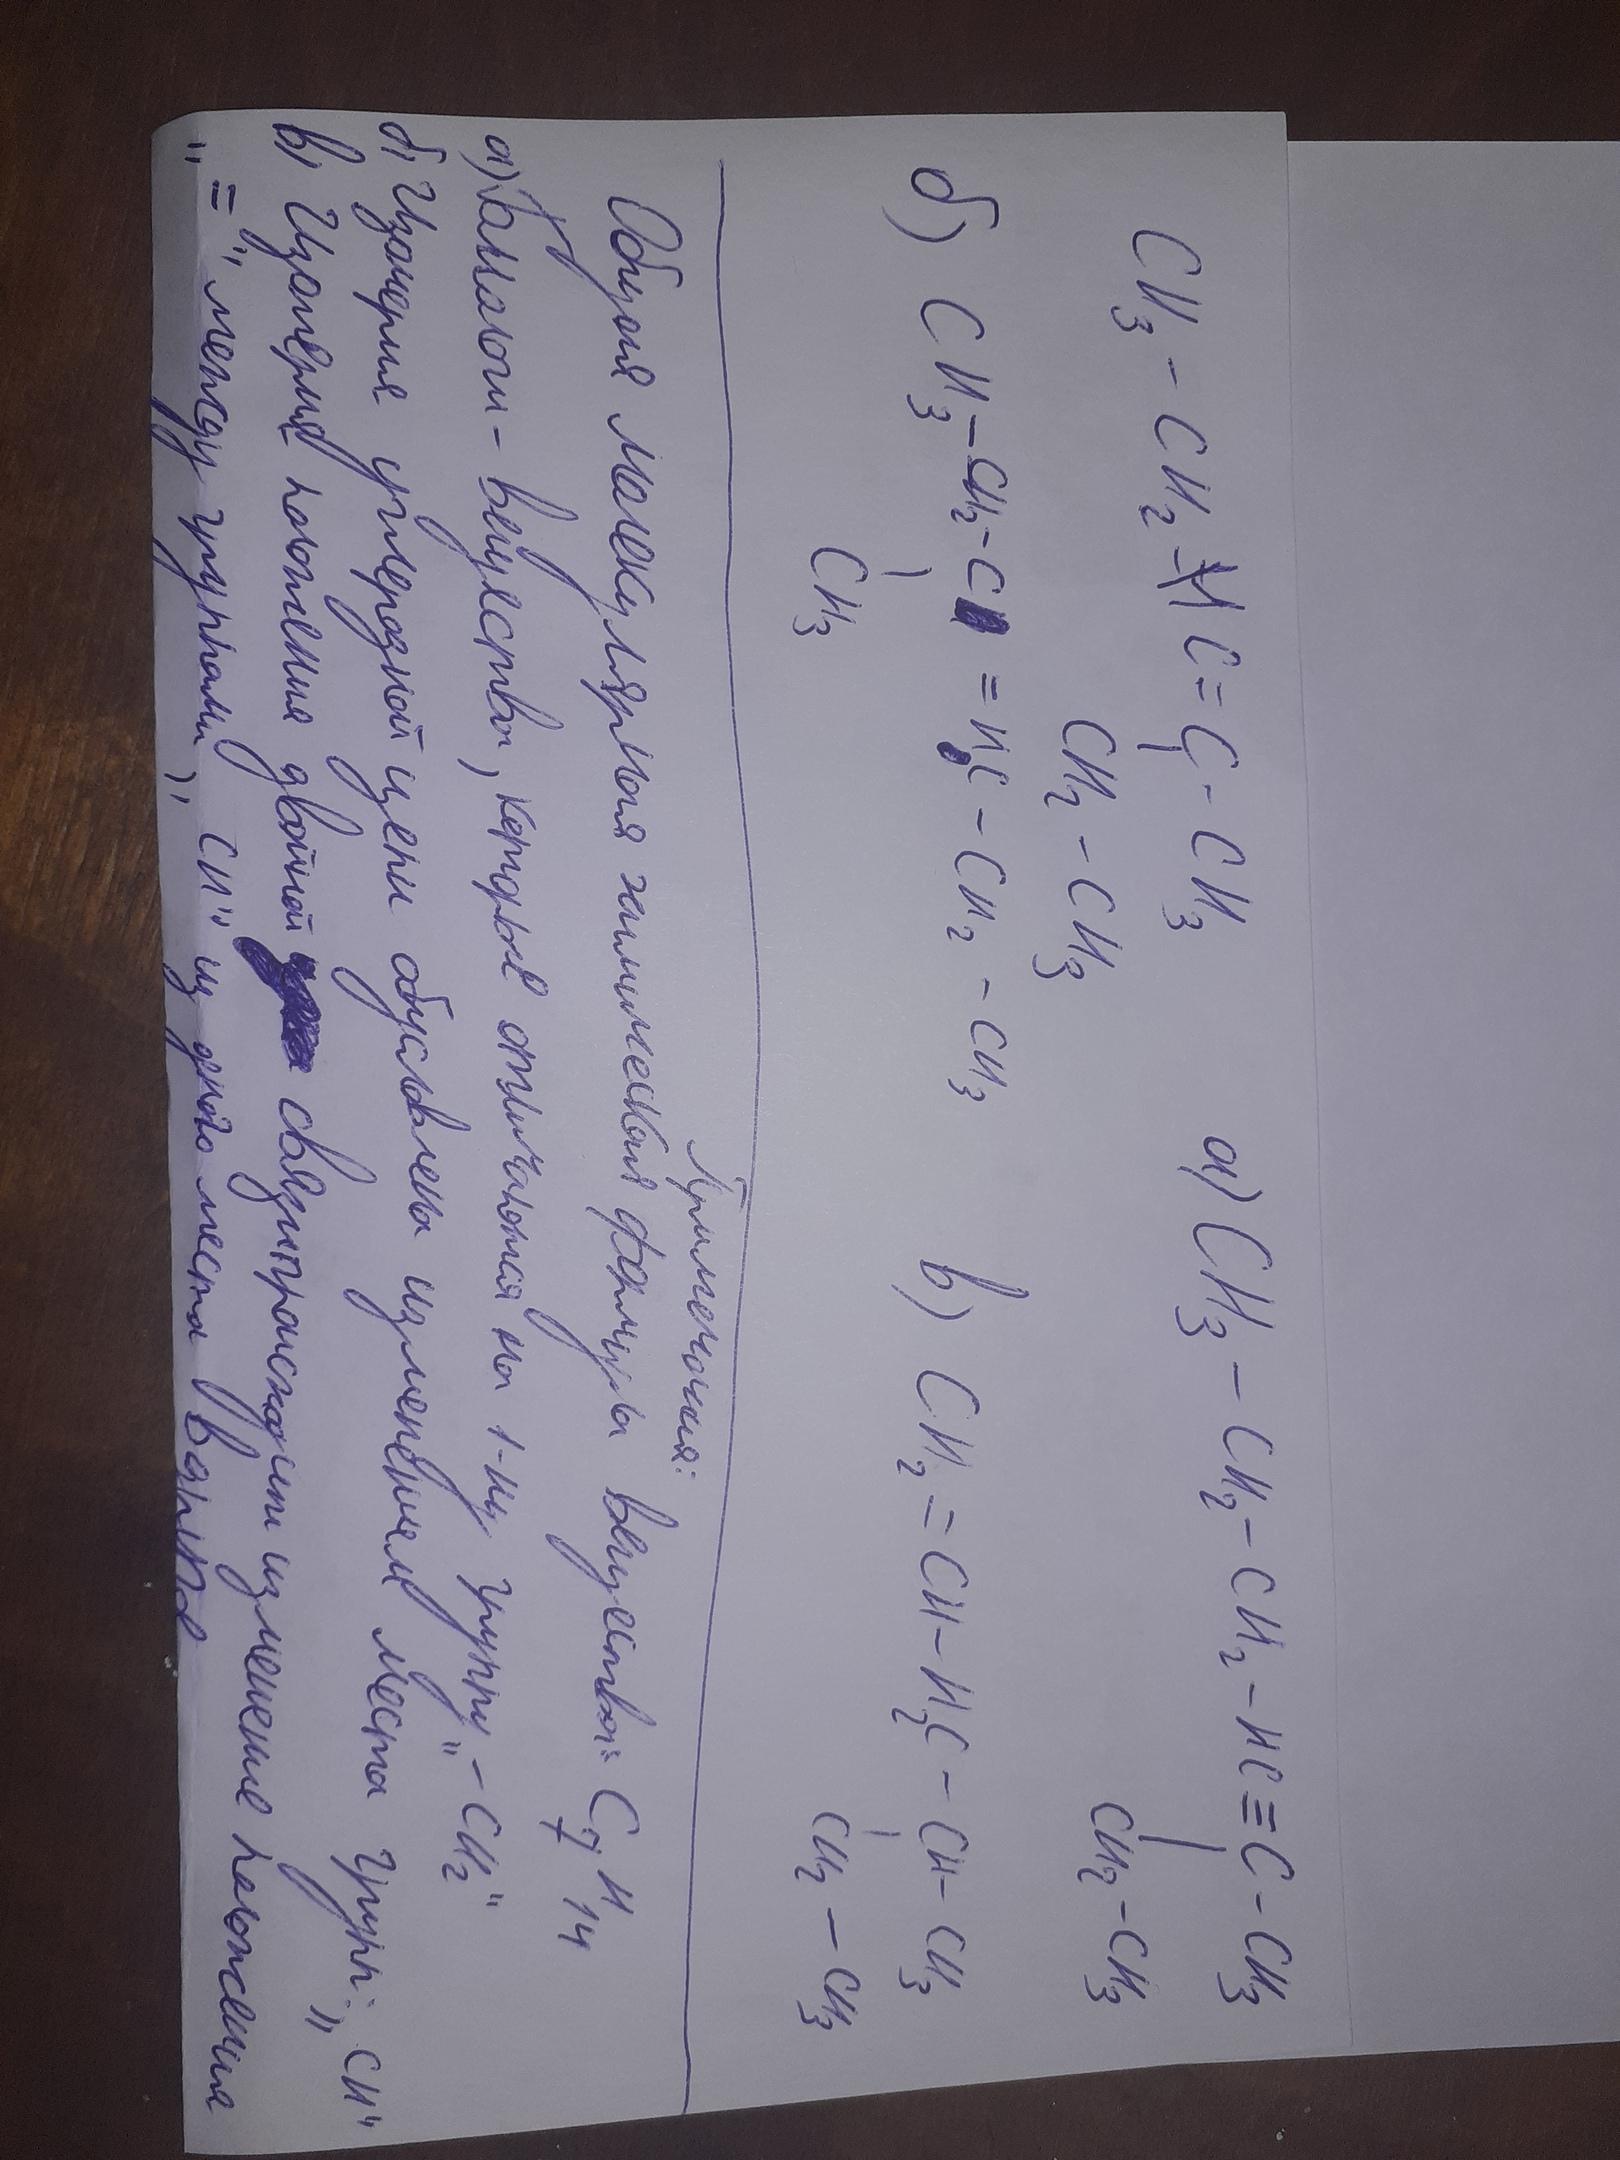 CH3 - CH2 - HC = C - CH3
CH2 - CH3
а) CH3 - CH2 - CH2 - HC = C - CH3
CH2 - CH3
б) CH3 - CH2 - C = HC - CH2 - CH3
CH3
в) CH2 = CH - H2C - CH - CH3
CH2 - CH3
Примечания:
Общая молекулярная химическая формула вещества: C7H14
а) Гомологи - вещества, которые отличаются на 1-ну группу "- CH2"
б) Изомерия углеродной цепи обусловлена изменением места групп: "CH"
в) Изомерия положения двойной связи происходит изменение положения
"=" между группами "CH" из одного места в другое